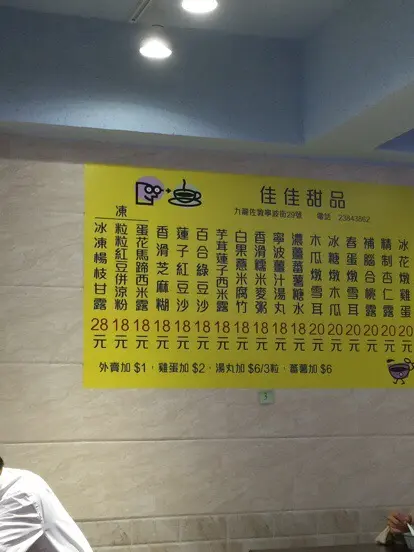 佳佳甜品
九龍佐敦寧波街29號 電話 23843862
冰花燉雞蛋 20元
精制杏仁露 20元
補腦合桃露 20元
春蛋燉雪耳 20元
冰糖燉木瓜 20元
木瓜燉雪耳 20元
濃薑蕃薯糖水 18元
寧波薑汁湯丸 18元
香滑糯米麥粥 18元
白果薏米腐竹 18元
芋茸蓮子西米露 18元
百合綠豆沙 18元
蓮子紅豆沙 18元
香滑芝麻糊 18元
凍
蛋花馬蹄西米露 18元
粒粒紅豆併涼粉 18元
冰凍楊枝甘露 28元
外賣加 $1，雞蛋加 $2，湯丸加 $6/3粒，蕃薯加 $6